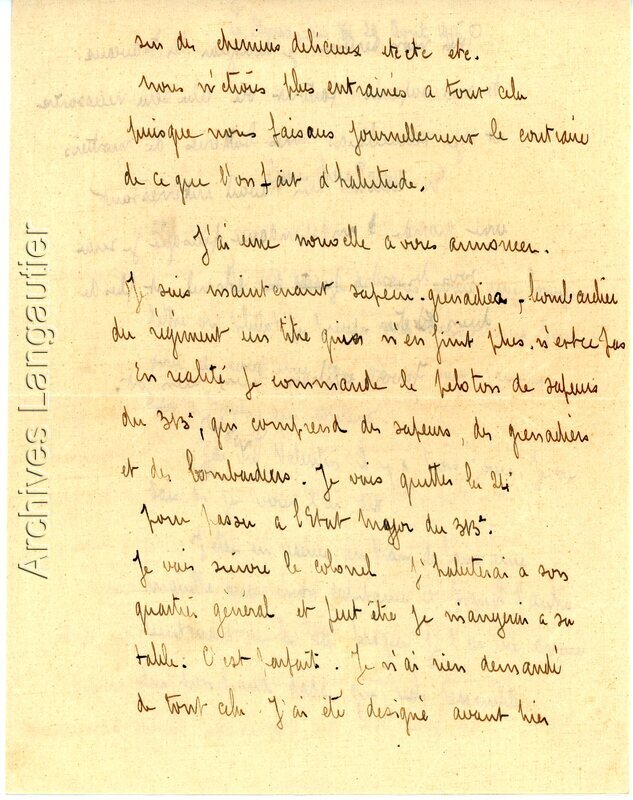 sur des chemins delicieux etc etc etc.
nous n'étions plus entrainés a tout cela
puisque nous faisons journellement le contraire
de ce que l'on fait d'habitude.
J'ai une nouvelle a vous annoncer.
Je suis maintenant sapeur-grenadier, bombardier
du régiment un titre qui n'en finit plus, n'est ce pas
En realité je commande le peloton de sapeurs
du 313e, qui comprend des sapeurs, des grenadiers
et des bombardiers. Je vais quitter la 24e
pour passer a l'Etat Major du 313e.
Je vais suivre le colonel j'habiterai a son
quartier général et peut être je mangerai a sa
table. C'est parfait. Je n'ai rien demandé
de tout cela. J'ai été designé avant hier
Archives Langautier